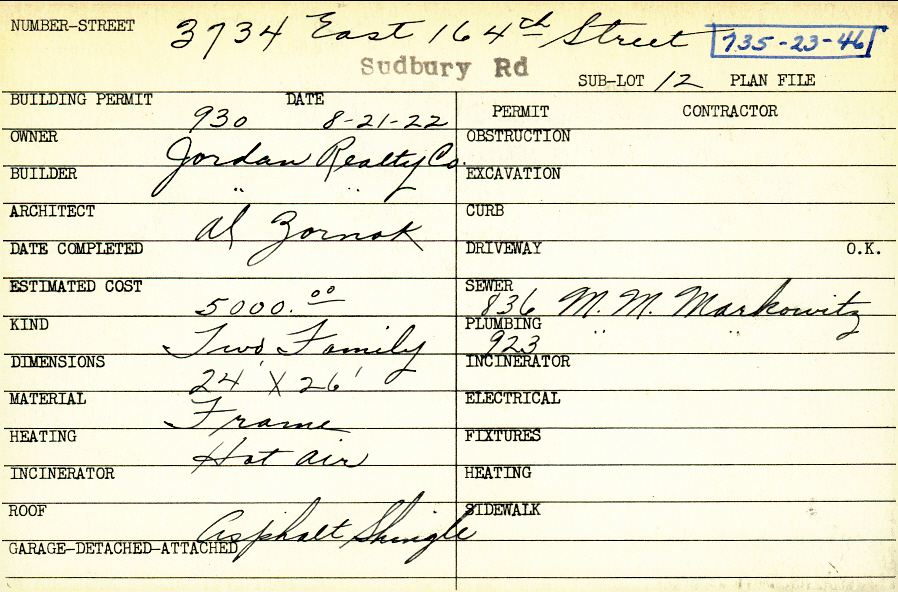 NUMBER-STREET 3734 East 164th Street 735-23-46
Sudbury Rd
SUB-LOT 12 PLAN FILE
BUILDING PERMIT 930 DATE 8-21-22
PERMIT CONTRACTOR
OWNER Jordan Realty Co.
OBSTRUCTION
BUILDER " "
EXCAVATION
ARCHITECT Al Zornok
CURB
DATE COMPLETED
DRIVEWAY O.K.
ESTIMATED COST 5000.00
SEWER 836 M. M. Markowitz
KIND Two Family
PLUMBING 923 " "
DIMENSIONS 24' X 26'
INCINERATOR
MATERIAL Frame
ELECTRICAL
HEATING Hot air
FIXTURES
INCINERATOR
HEATING
ROOF Asphalt Shingle
SIDEWALK
GARAGE-DETACHED-ATTACHED